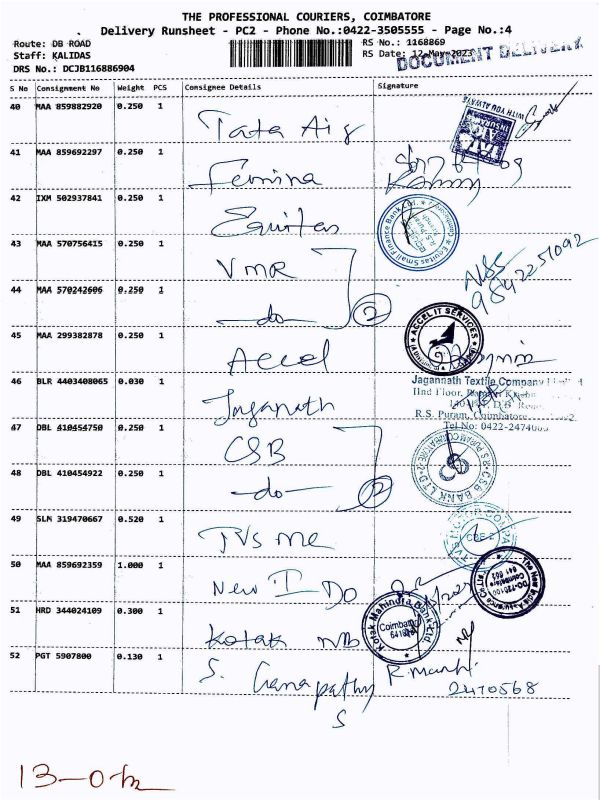 THE PROFESSIONAL COURIERS, COIMBATORE
Delivery Runsheet - PC2 - Phone No.:0422-3505555 - Page No.:4
Route: DB ROAD
Staff: KALIDAS
DRS No.: DCJB116886904
RS No.: 1168869
RS Date: 12-May-2023
DOCUMENT DELIVERY
S No Consignment No Weight PCS Consignee Details Signature
40 MAA 859882920 0.250 1 Tata Aig
WITH YOU ALWAYS
41 MAA 859692297 0.250 1 Femina
42 IXM 502937841 0.250 1 Equitas
Equitas Small Finance Bank Ltd.
R.S. Puram
43 MAA 570756415 0.250 1 VMR
9842251092
44 MAA 570242606 0.250 1 -do- 2
45 MAA 299382878 0.250 1 Accel
ACCEL IT SERVICES
46 BLR 4403408065 0.030 1 Jaganath
Jagannath Textile Company
IInd Floor,
R.S. Puram, Coimbatore
Tel No: 0422-2474
47 DBL 410454750 0.250 1 CSB
48 DBL 410454922 0.250 1 -do- 2
CSB BANK LTD
49 SLM 319470667 0.520 1 TVS
CBE-2
50 MAA 859692359 1.000 1 New I Do
The New India Assurance Co.
DO-720100
Coimbatore
641 002
51 HRD 344024109 0.300 1 Kotak MB
Kotak Mahindra Bank Ltd.
Coimbatore
52 PGT 5907800 0.130 1 S. Ganapathy S
R. Manki
2470568